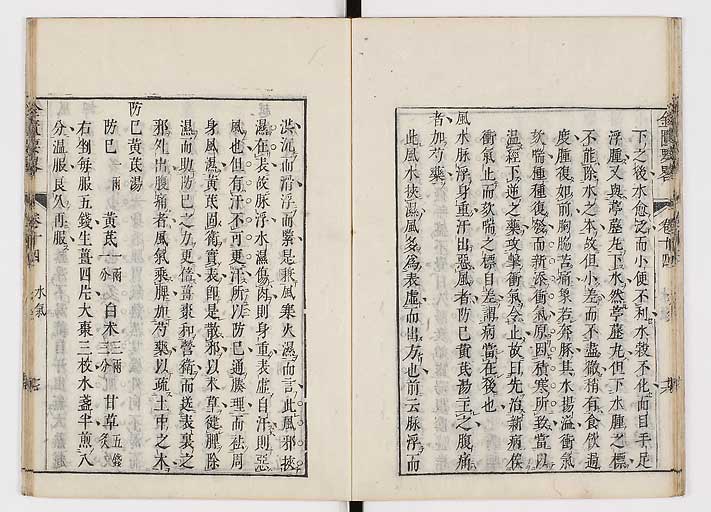 下之後水愈泛而小便不利水穀不化而目手足
浮腫又與葶藶丸下水然葶藶丸但下水腫之標
不能除水之本故但小差而不盡徹稍有食飲過
度腫復如前胸脇苦痛象若奔豚其水揚溢衝氣
欬喘種種復發而新添衝氣原因積寒所致當以
溫經下逆之藥攻擊衝氣令止故曰先治新病俟
衝氣止而欬喘之標自差謂病當在後也
風水脉浮身重汗出惡風者防已黃芪湯主之腹痛
者加芍藥
此風水挾濕風多爲表虛而出方也前云脉浮而
洪沉而滑浮而緊是挾風寒火濕而言此風邪挾
濕在表故脉浮水濕傷肉則身重表虛自汗則惡
風也但有汗不可更汗所以防已通腠理而祛周
身風濕黃芪固衛實表即是散邪以朮草健脾除
濕而助防已之力更倍薑棗和營衛而送表裏之
邪外出腹痛者風氣乘脾加芍藥以疏土中之木
防已黃芪湯
防已一兩 黃芪一兩一分 白朮三兩三分 甘草五錢炙
右剉每服五錢生薑四片大棗三枚水盞半煎八
分溫服良久再服
金匱要畧
卷十四
水氣
金匱要畧
卷十四